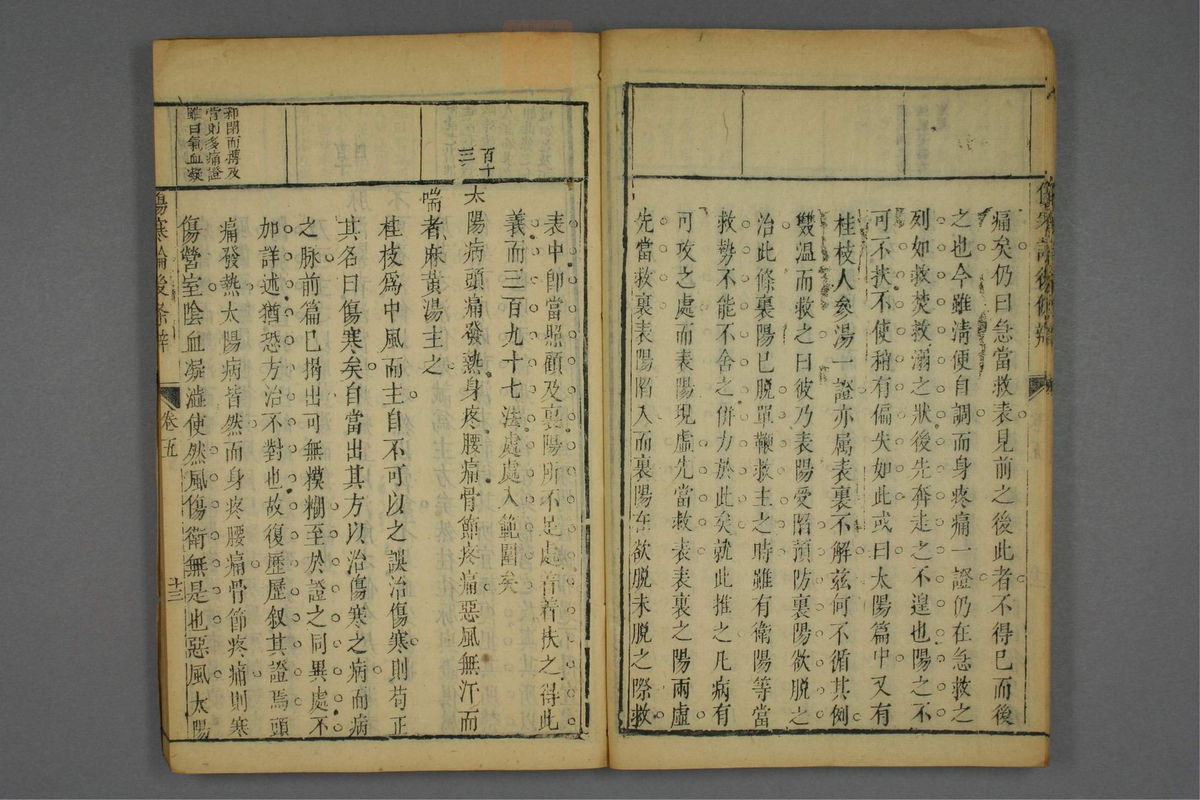 痛矣仍曰急當救表見前之後此者不得已而後
之也今雖清便自調而身疼痛一證仍在急救之
列如救焚救溺之狀後先奔走之不遑也陽之不
可不扶不使稍有偏失如此或曰太陽篇中又有
桂枝人參湯一證亦属表裏不解茲何不循其例
雙溫而救之曰彼乃表陽受陷預防裏陽欲脫之
治此條裏陽已脫單鞭救主之時雖有衛陽等當
救勢不能不舍之併力於此矣就此推之凡病有
可攻之處而表陽現虛先當救表表裏之陽兩虛
先當救裏表陽陷入而裏陽在欲脫未脫之際救
傷寒論後條辨
表中卽當照顧及裏陽所不足處音着扶之得此
義而三百九十七法處處入範圍矣
百十
三
太陽病頭痛發熱身疼腰痛骨節疼痛惡風無汗而
喘者麻黃湯主之
桂枝爲中風而主自不可以之誤治傷寒則苟正
其名曰傷寒矣自當出其方以治傷寒之病而病
之脉前篇已揭出可無模糊至於證之同異處不
加詳述猶恐方治不對也故復歷歷叙其證焉頭
痛發熱太陽病皆然而身疼腰痛骨節疼痛則寒
傷營室陰血凝澁使然風傷衛無是也惡風太陽
邪閉而薄及
營則多痛證
雖曰氣血凝
傷寒論後條辨
卷五
十三